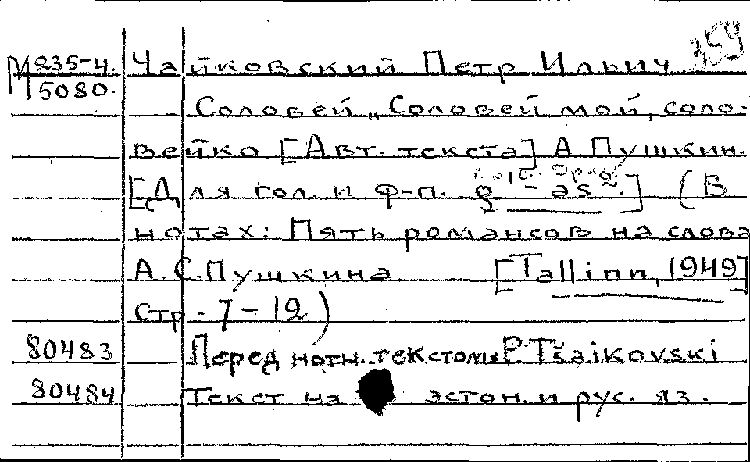 М 235-4. Чайковский Петр Ильич 259
5080.
Соловей „Соловей мой, соло-
вейко [Авт. текста] А Пушкин.
[Для гол. и ф-п. g - as².] (В
нотах: Пять романсов на слова
А.С.Пушкина [Tallinn, 1949]
Стр. 7-12)
80483 Перед нотн. текстом: P. Tšaikovski
80484 Текст на эстон. и рус. яз.